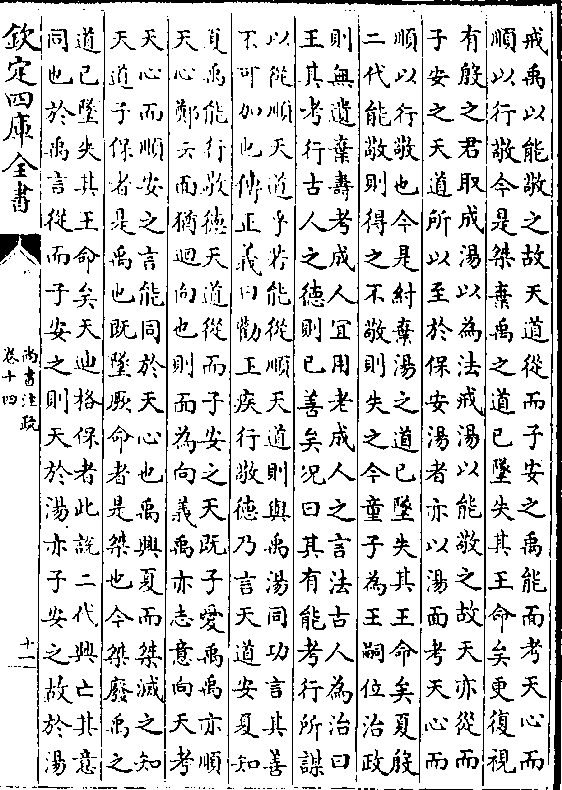 戒禹以能敬之故天道從而子安之禹能面考天心而
順以行敬今是桀棄禹之道已墜失其王命矣更復視
有殷之君取成湯以為法戒湯以能敬之故天亦從而
子安之天道所以至於保安湯者亦以湯面考天心而
順以行敬也今是紂棄湯之道已墜失其王命矣夏殷
二代能敬則得之不敬則失之今童子為王嗣位治政
則無遺棄壽考成人冝用老成人之言法古人為治曰
王其考行古人之德則已善矣况曰其有能考行所謀
以從順天道乎若能從順天道則與禹湯同功言其善
不可加也傳正義曰勸王疾行敬德乃言天道安夏知
夏禹能行敬德天道從而子安之天既子愛禹禹亦順
天心鄭云面猶迴向也則面為向義禹亦志意向天考
天心而順安之言能同於天心也禹興夏而桀滅之知
天道子保者是禹也既墜厥命者是桀也今桀廢禹之
道已墜失其王命矣天迪格保者此說二代興亡其意
同也於禹言從而子安之則天於湯亦子安之故於湯
欽定四庫全書
尚書注疏
卷十四
十二